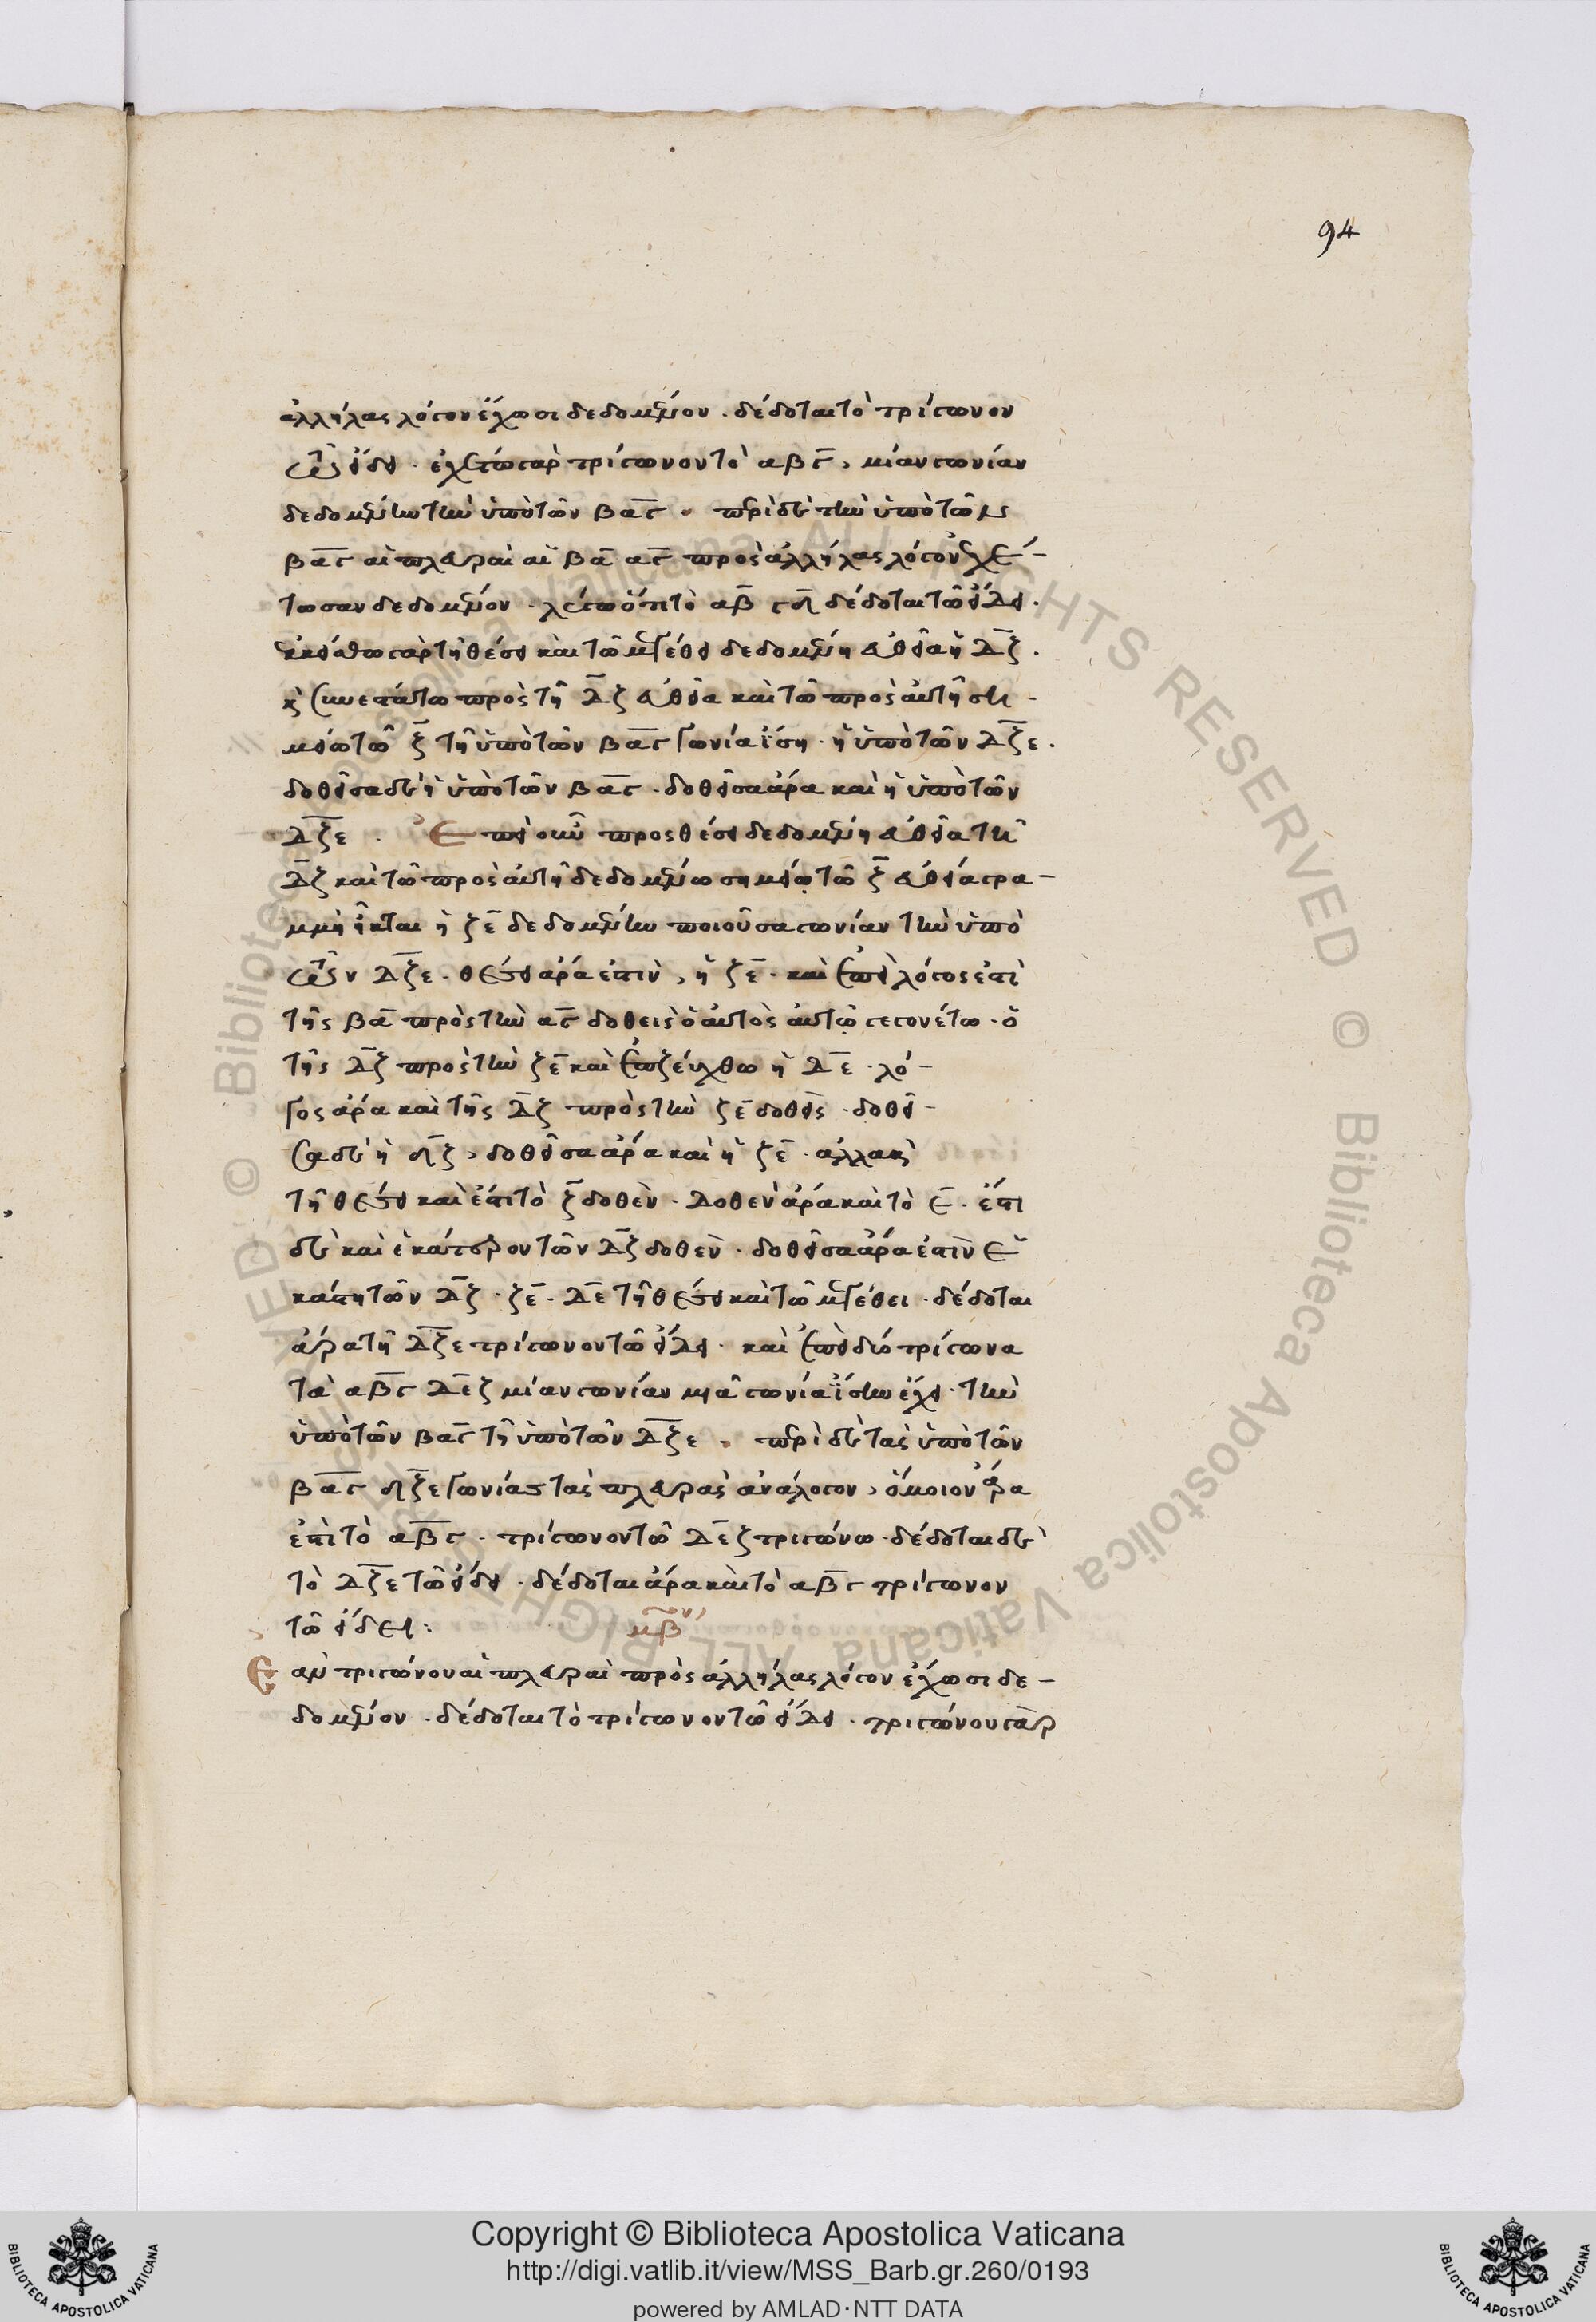 94
ἀλλήλας λόγον ἔχωσι δεδομένον · δέδοται τὸ τρίγωνον
τῶ εἴδει · ἐχέτω γὰρ τρίγωνον τὸ αβγ, μίαν γωνίαν
δεδομένην τὴν ὑπὸ τῶν βαγ · περὶ δὲ τὴν ὑπὸ τῶν
βαγ αἱ πλευραὶ αἱ βα αγ πρὸς ἀλλήλας λόγον ἐχέ-
τωσαν δεδομένον · λέγω ὅτι τὸ αβγ δέδοται τῶ εἴδει ·
ἐκκείσθω γὰρ τῆ θέσει καὶ τῶ μεγέθει δεδομένη εὐθεῖα ἡ δζ ·
κὶ συνεστάτω πρὸς τῆ δζ εὐθεία καὶ τῶ πρὸς αὐτῆ ση-
μείω τῶ ζ τῆ ὑπὸ τῶν βαγ γωνία ἴση · ἡ ὑπὸ τῶν δζε ·
δοθεῖσα δὲ ἡ ὑπὸ τῶν βαγ · δοθεῖσα ἄρα καὶ ἡ ὑπὸ τῶν
δζε · Ἐπεὶ οὖν πρὸς θέσει δεδομένη εὐθεία τῆ
δζ καὶ τῶ πρὸς αὐτῆ δεδομένω σημείω τῶ ζ εὐθεία γρα-
μμὴ ἦκται ἡ ζε δεδομένην ποιοῦσα γωνίαν τὴν ὑπὸ
τῶν δζε · θέσει ἄρα ἐστὶν, ἡ ζε · καὶ ἐπεὶ λόγος ἐστὶ
τῆς βα πρὸς τὴν αγ δοθεὶς ὁ αὐτὸς αὐτῶ γεγονέτω · ὁ
τῆς δζ πρὸς τὴν ζε καὶ ἐπεζεύχθω ἡ δε · λό-
γος ἄρα καὶ τῆς δζ πρὸς τὴν ζε δοθείς · δοθεῖ-
σα δὲ ἡ δζ, δοθεῖσα ἄρα καὶ ἡ ζε · ἀλλὰ κὶ
τῆ θέσει καὶ ἔστι τὸ ζ δοθὲν · δοθὲν ἄρα καὶ τὸ ε · ἔστι
δὲ καὶ ἑκάτερον τῶν δζ δοθὲν · δοθεῖσα ἄρα ἐστὶν ἑ
κάστη τῶν δζ · ζε · δε τῆ θέσει καὶ τῶ μεγέθει · δέδοται
ἄρα τῆ δζε τρίγωνον τῶ εἴδει · καὶ ἐπεὶ δύο τρίγωνα
τὰ αβγ δεζ μίαν γωνίαν μιᾶ γωνία ἴσην ἔχει · τὴν
ὑπὸ τῶν βαγ τῆ ὑπὸ τῶν δζε · περὶ δὲ τὰς ὑπὸ τῶν
βαγ δζε γωνίας τὰς πλευρὰς ἀνάλογον, ὅμοιον ἄρα
ἐστὶ τὸ αβγ · τρίγωνον τῶ δεζ τριγώνω · δέδοται δὲ
τὸ δζε τῶ εἴδει · δέδοται ἄρα καὶ τὸ αβγ τρίγωνον
τῶ εἴδει : μβ
Ἐὰν τριγώνου αἱ πλευραὶ πρὸς ἀλλήλας λόγον ἔχωσι δε-
δομένον · δέδοται τὸ τρίγωνον τῶ εἴδει · τριγώνου γὰρ
Copyright © Biblioteca Apostolica Vaticana
http://digi.vatlib.it/view/MSS_Barb.gr.260/0193
powered by AMLAD·NTT DATA